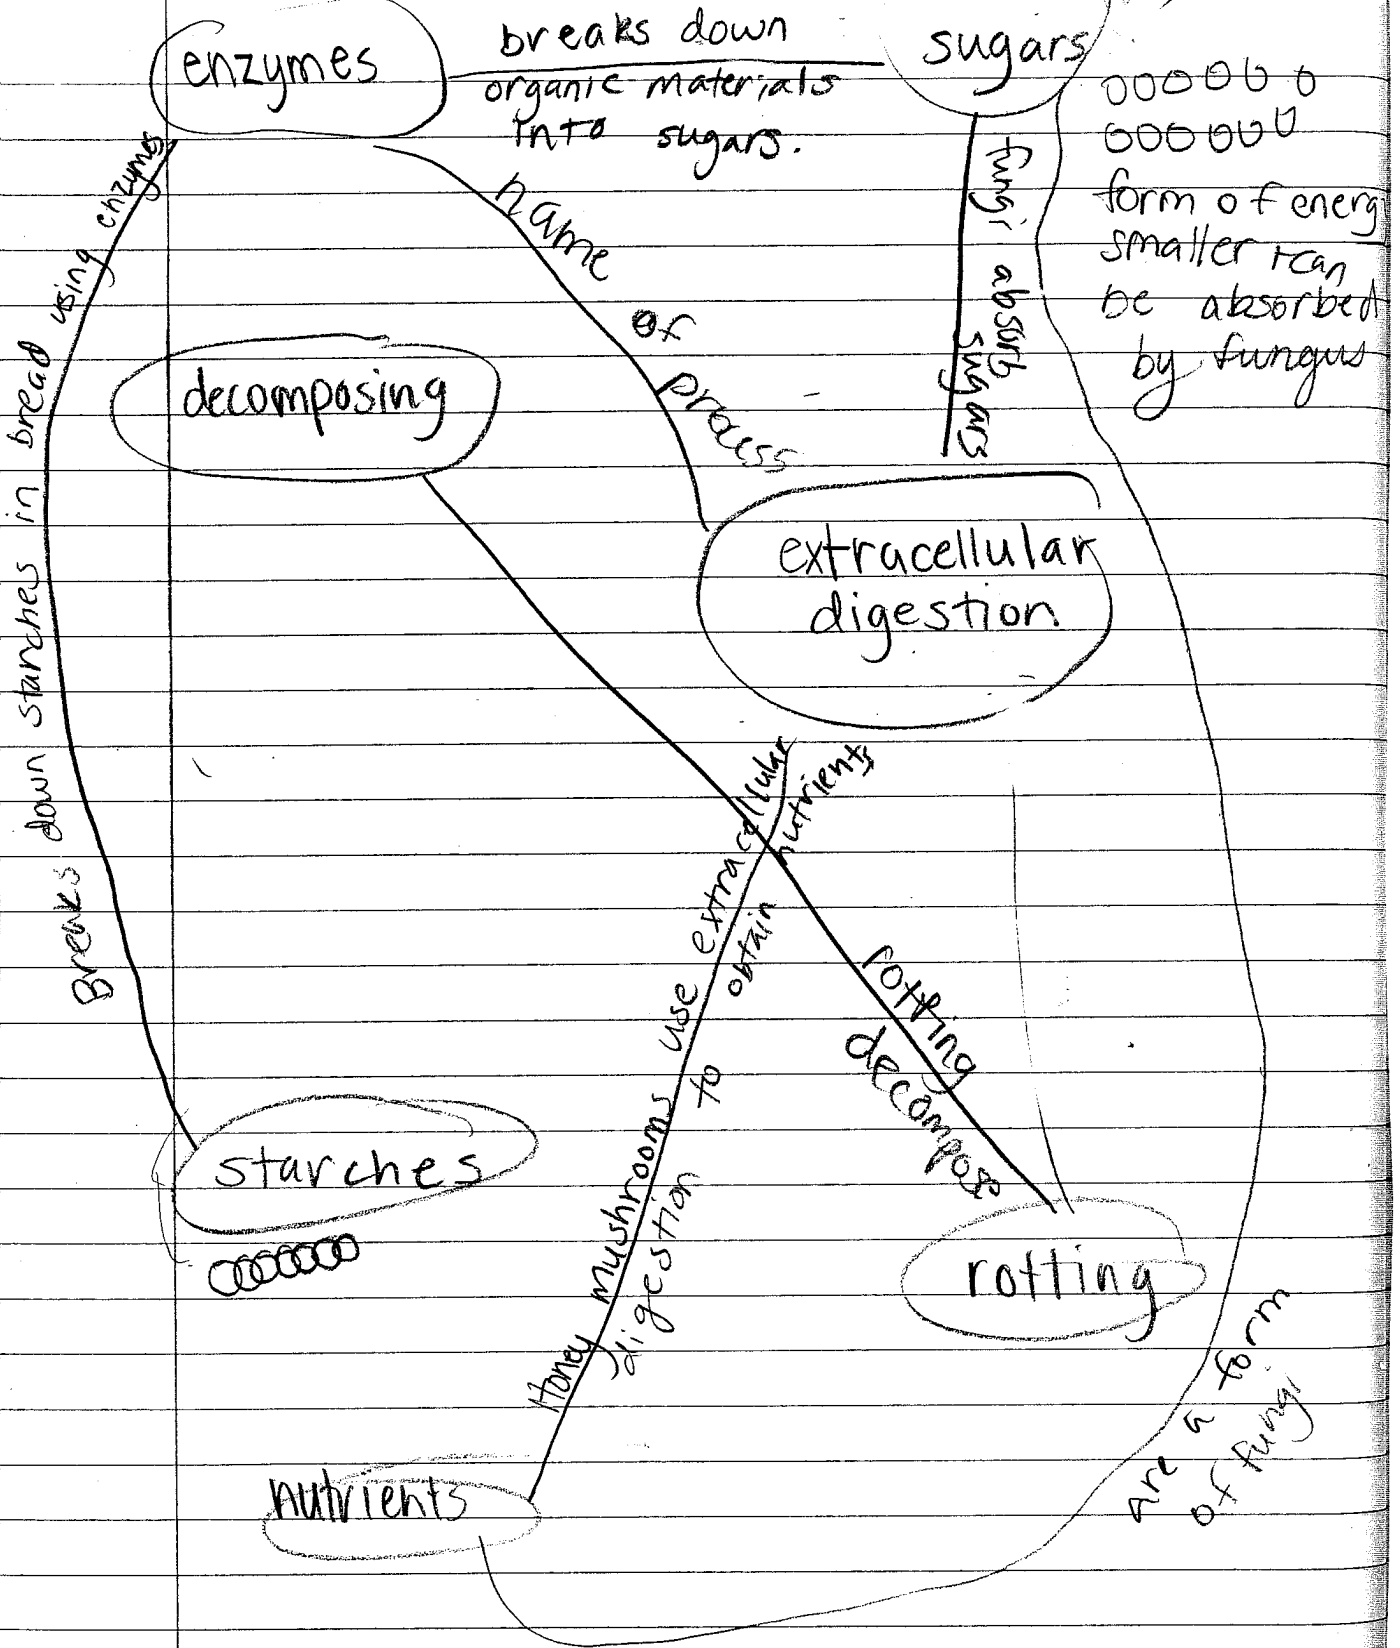 enzymes
breaks down
organic materials
into sugars.
sugars
form of energ
smaller + can
be absorbed
by fungus
fungi absorb
sugars
name of process
Breaks down starches in bread using enzymes
decomposing
extracellular
digestion
Honey mushrooms use extracellular
digestion to obtain nutrients
rotting
decompose
starches
rotting
nutrients
are a form
of fungi